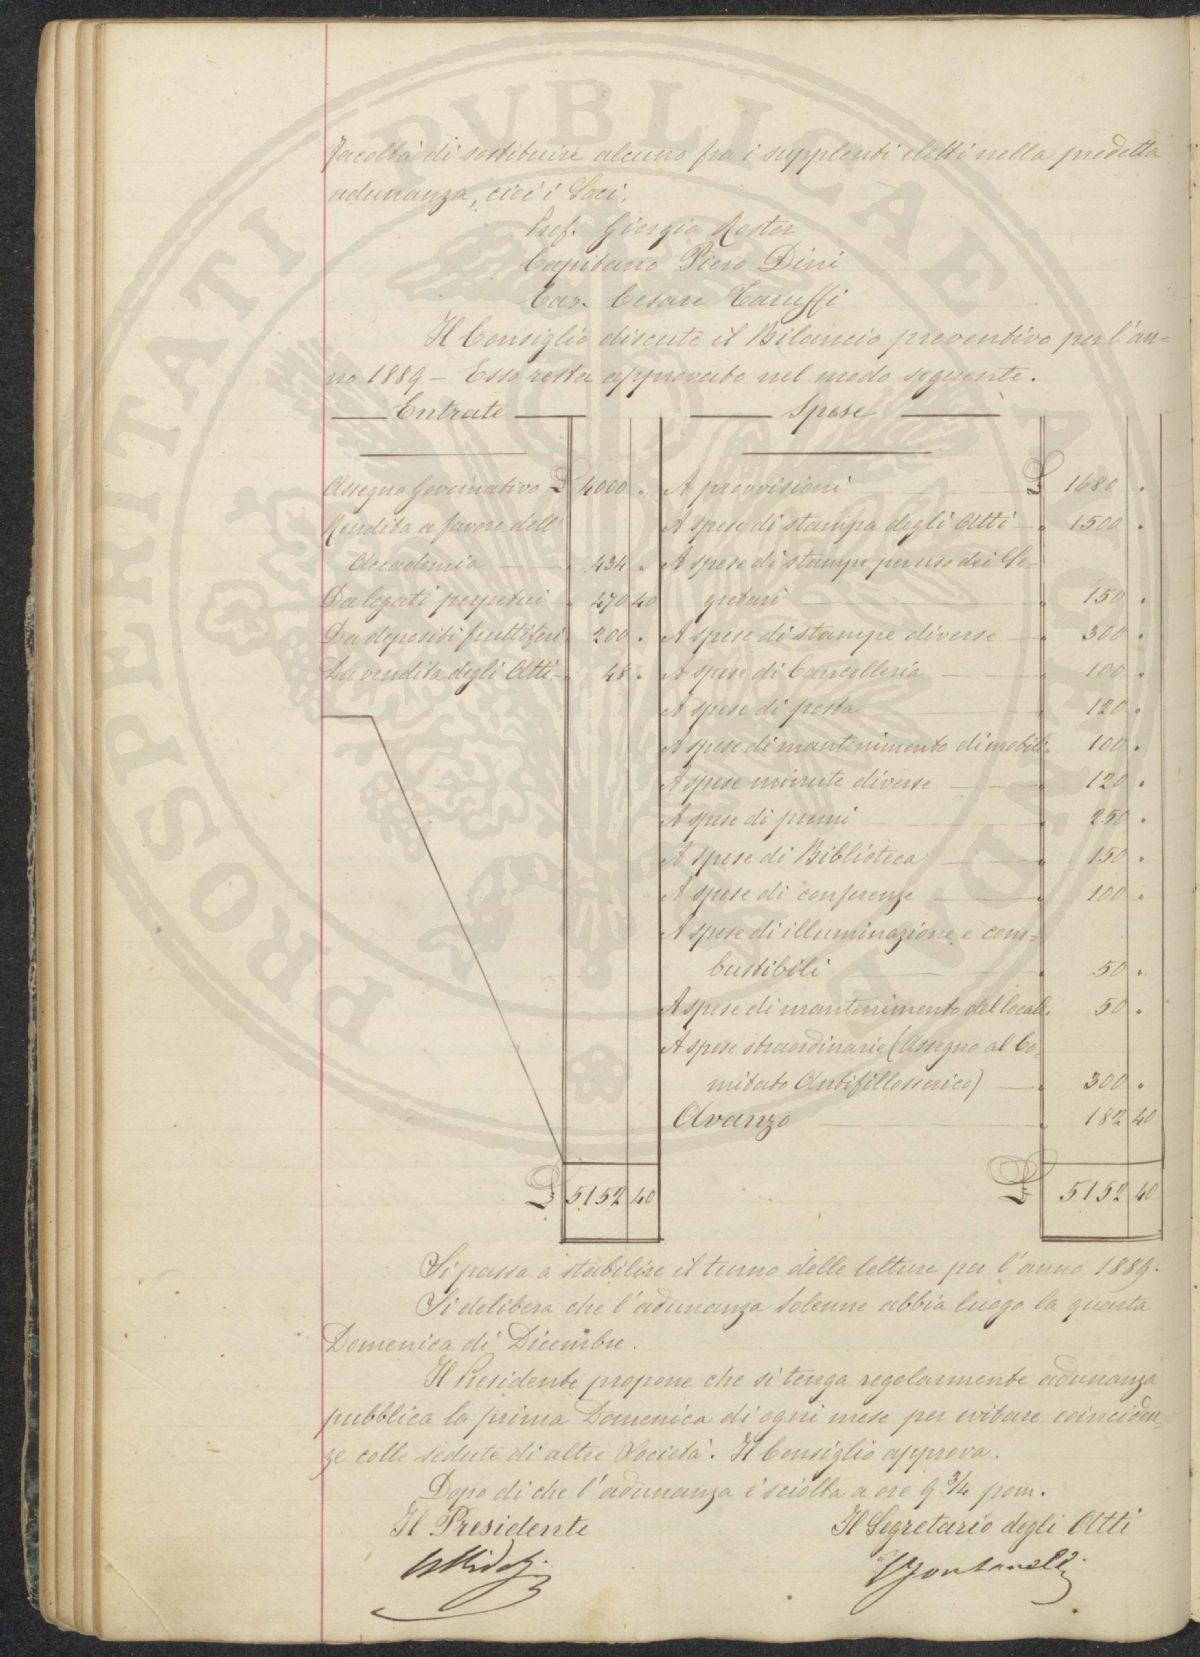 facoltà di sostituire alcuno fra i supplenti eletti nella predetta
adunanza, cioè i Soci,
Prof. Giorgio Roster
Capitano Piero Dini
Cav. Cesare Taruffi
Il Consiglio discute il Bilancio preventivo per l'an=
no 1889 – Esso resta approvato nel modo seguente.
Entrate
Assegno Governativo £ 4000 "
Rendita a favore dell'
Accademia " 434 "
Da legati perpetui " 470 40
Da depositi fruttiferi " 200 "
Da vendita degli Atti " 48 "
£ 5152 40
Spese
A provvisioni £ 1680 "
A spese di stampa degli Atti " 1500 "
A spese di stampe per uso dei Se=
gretari " 150 "
A spese di stampe diverse " 300 "
A spese di Cancelleria " 100 "
A spese di posta " 120 "
A spese di mantenimento di mobili " 100 "
A spese minute diverse " 120 "
A spese di premi " 250 "
A spese di Biblioteca " 150 "
A spese di conferenze " 100 "
A spese di illuminazione e com=
bustibili " 50 "
A spese di mantenimento del locale " 50 "
A spese straordinarie (Assegno al Co=
mitato Antifillosserico) " 300 "
Avanzo " 182 40
£ 5152 40
Si passa a stabilire il turno delle letture per l'anno 1889.
Si delibera che l'adunanza solenne abbia luogo la quarta
Domenica di Dicembre.
Il Presidente propone che si tenga regolarmente adunanza
pubblica la prima Domenica di ogni mese per evitare coinciden=
ze colle sedute di altre Società. Il Consiglio approva.
Dopo di che l'adunanza è sciolta a ore 9 3/4 pom.
Il Presidente
Il Segretario degli Atti
L Ridolfi
Fontanelli
PROSPERITATI PUBLICAE AUGENDAE